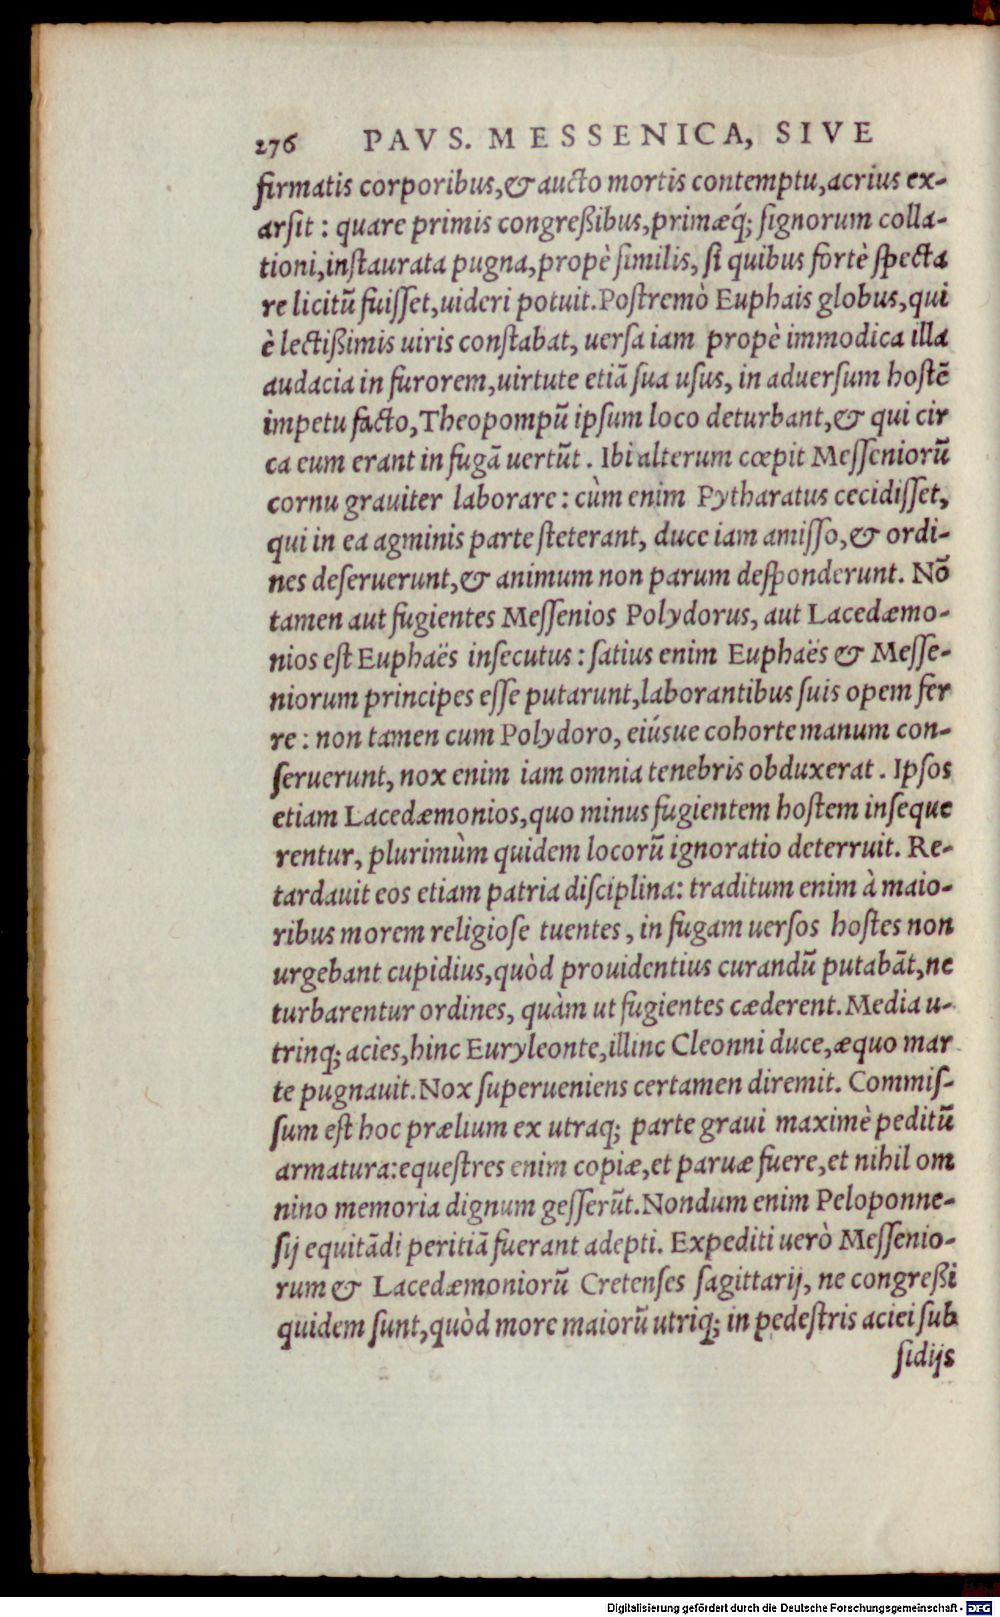 276 PAVS. MESSENICA, SIVE
firmatis corporibus,& aucto mortis contemptu,acrius ex-
arsit : quare primis congreßibus,primæq́; signorum colla-
tioni,instaurata pugna,propè similis, si quibus fortè specta
re licitū fuisset,uideri potuit.Postremò Euphais globus,qui
è lectißimis uiris constabat, uersa iam propè immodica illa
audacia in furorem,uirtute etiā sua usus, in aduersum hostē
impetu facto,Theopompū ipsum loco deturbant,& qui cir
ca eum erant in fugā uertūt . Ibi alterum cœpit Messeniorū
cornu grauiter laborare : cùm enim Pytharatus cecidisset,
qui in ea agminis parte steterant, duce iam amisso,& ordi-
nes deseruerunt,& animum non parum desponderunt. Nō
tamen aut fugientes Messenios Polydorus, aut Lacedæmo-
nios est Euphaës insecutus : satius enim Euphaës & Messe-
niorum principes esse putarunt,laborantibus suis opem fer
re : non tamen cum Polydoro, eiúsue cohorte manum con-
seruerunt, nox enim iam omnia tenebris obduxerat . Ipsos
etiam Lacedæmonios,quo minus fugientem hostem inseque
rentur, plurimùm quidem locorū ignoratio deterruit. Re-
tardauit eos etiam patria disciplina: traditum enim à maio-
ribus morem religiose tuentes , in fugam uersos hostes non
urgebant cupidius,quòd prouidentius curandū putabāt,ne
turbarentur ordines, quàm ut fugientes cæderent.Media u-
trinq; acies,hinc Euryleonte,illinc Cleonni duce,æquo mar
te pugnauit.Nox superueniens certamen diremit. Commis-
sum est hoc prælium ex utraq; parte graui maximè peditū
armatura:equestres enim copiæ,et paruæ fuere,et nihil om
nino memoria dignum gesserūt.Nondum enim Peloponne-
sij equitādi peritiā fuerant adepti. Expediti uerò Messenio-
rum & Lacedæmoniorū Cretenses sagittarij, ne congreßi
quidem sunt,quòd more maiorū utriq; in pedestris aciei sub
sidijs
Digitalisierung gefördert durch die Deutsche Forschungsgemeinschaft - DFG